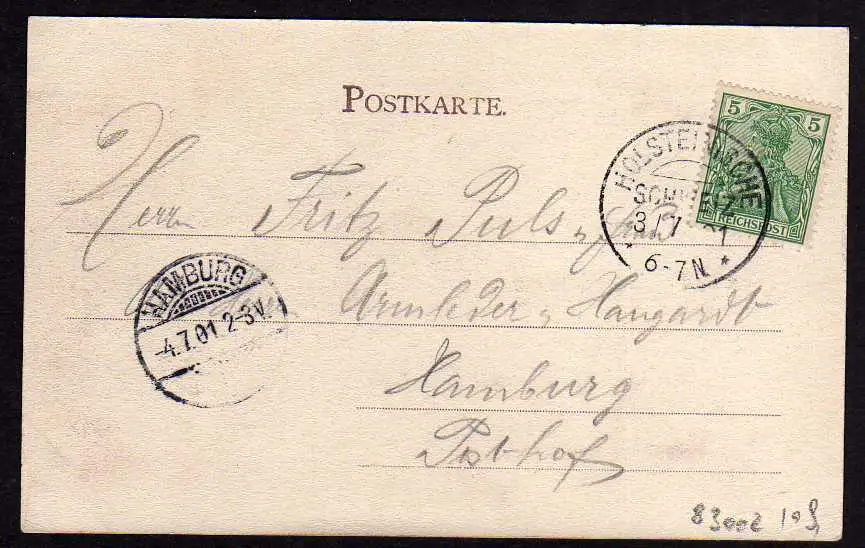 POSTKARTE.
5 5
REICHSPOST
HOLSTEINISCHE
SCHWEIZ
3/7 01
* 6-7N. *
Herrn Fritz Puls
HAMBURG
4.7.01 2-3V.
Armleder Haugardt
Hamburg
Posthof
83002